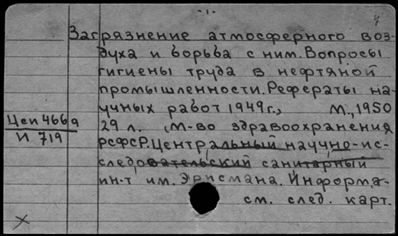 Загрязнение атмосферного воз-
духа и борьба с ним. Вопросы
гигиены труда в нефтяной
промышленности. Рефераты на-
учных работ 1949г., М., 1950
Цеи 466а
И 719
29 л. (М-во здравоохранения
РСФСР. Центральный научно-ис-
следовательский санитарный
ин-т им. Эрисмана. Информа-
см. след. карт.